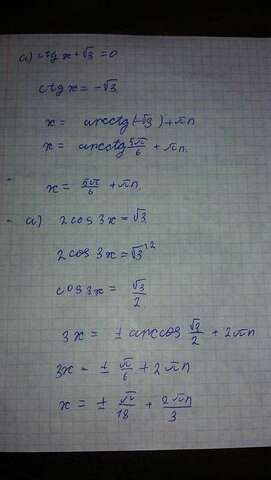 а) ctg x + √3 = 0
ctg x = -√3
x = arcctg(-√3) + πn
x = arcctg 5π/6 + πn.
x = 5π/6 + πn.
а) 2 cos 3x = √3
2 cos 3x = √3 |:2
cos 3x = √3/2
3x = ± arccos √3/2 + 2πn
3x = ± π/6 + 2πn
x = ± π/18 + 2πn/3